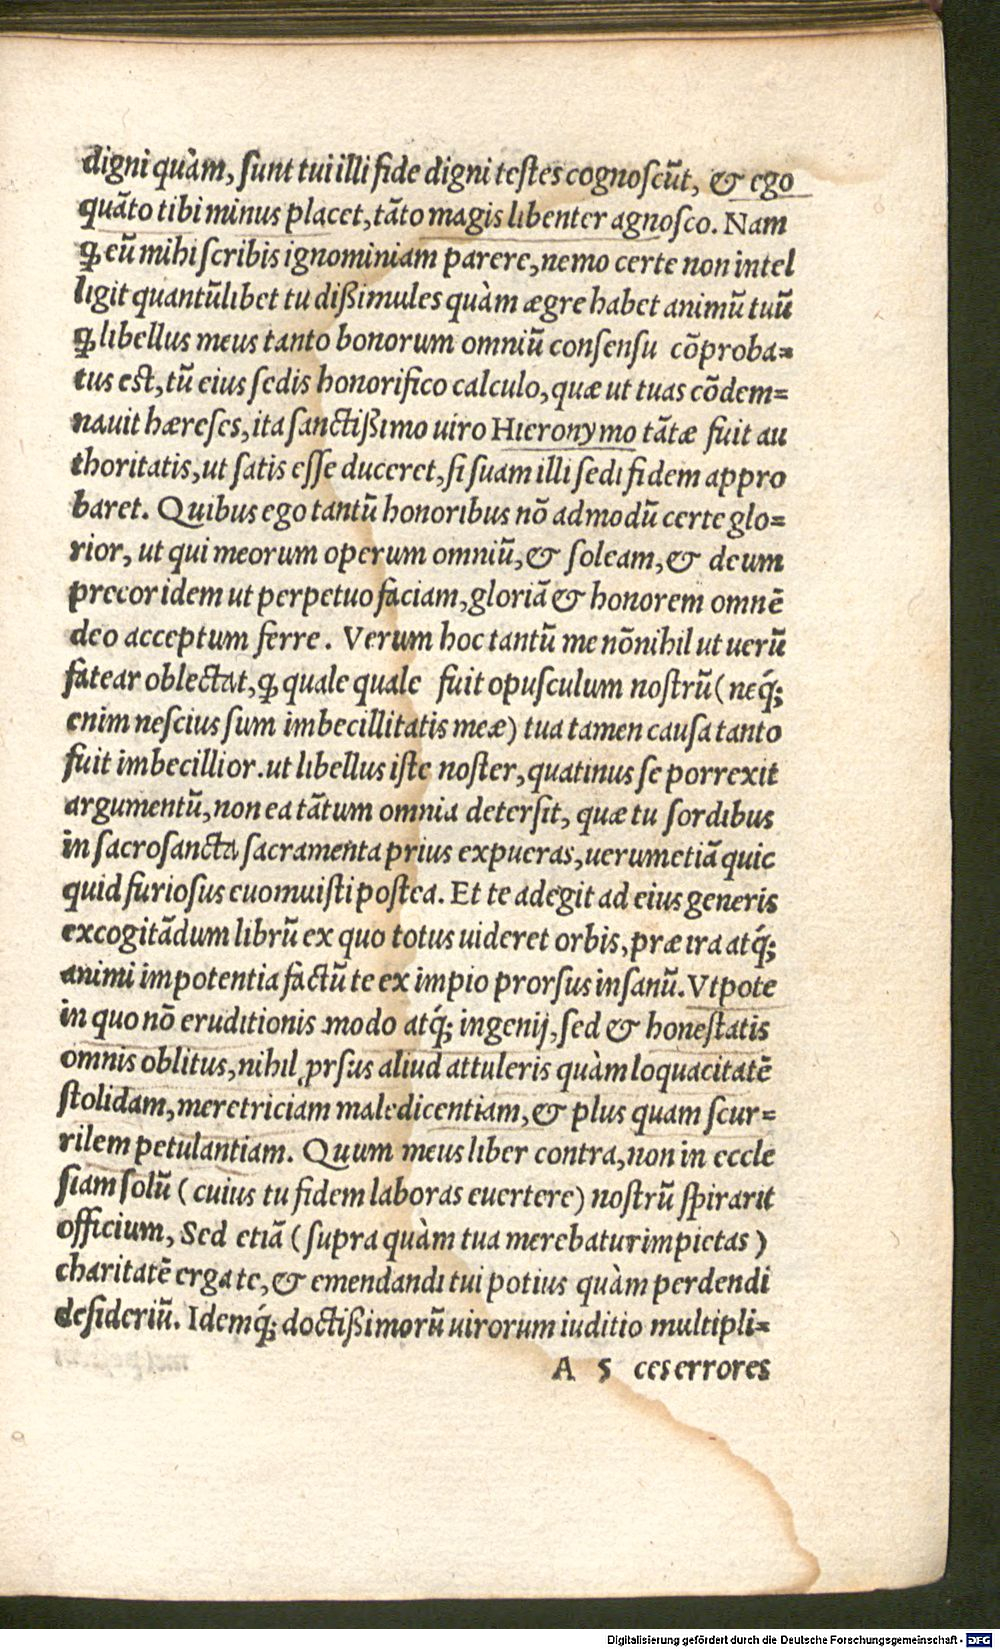 digni quàm, sunt tui illi fide digni testes cognoscũt, & ego
quãto tibi minus placet, tãto magis libenter agnosco. Nam
ꝙ eũ mihi scribis ignominiam parere, nemo certe non intel
ligit quantũlibet tu dißimules quàm ægre habet animũ tuũ
ꝙ libellus meus tanto bonorum omniũ consensu cõproba=
tus est, tũ eius sedis honorifico calculo, quæ ut tuas cõdem=
nauit hæreses, ita sanctißimo uiro Hieronymo tãtæ fuit au
thoritatis, ut satis esse duceret, si suam illi sedi fidem appro
baret. Quibus ego tantũ honoribus nõ admodũ certe glo=
rior, ut qui meorum operum omniũ, & soleam, & deum
precor idem ut perpetuo faciam, gloriã & honorem omnẽ
deo acceptum ferre. Verum hoc tantũ me nõnihil ut uerũ
fatear oblectat, ꝙ quale quale fuit opusculum nostrũ (neq́;
enim nescius sum imbecillitatis meæ) tua tamen causa tanto
fuit imbecillior. ut libellus iste noster, quatinus se porrexit
argumentũ, non ea tãtum omnia detersit, quæ tu sordibus
in sacrosancta sacramenta prius expueras, uerumetiã quic
quid furiosus euomuisti postea. Et te adegit ad eius generis
excogitãdum librũ ex quo totus uideret orbis, præ ira atq́;
animi impotentia factũ te ex impio prorsus insanũ. Vtpote
in quo nõ eruditionis modo atq́; ingenij, sed & honestatis
omnis oblitus, nihil ꝓrsus aliud attuleris quàm loquacitatẽ
stolidam, meretriciam maledicentiam, & plus quam scur=
rilem petulantiam. Quum meus liber contra, non in eccle
siam solũ (cuius tu fidem laboras euertere) nostrũ spirarit
officium, Sed etiã (supra quàm tua merebatur impietas)
charitatẽ erga te, & emendandi tui potius quàm perdendi
desideriũ. Idemq́; doctißimorũ uirorum iuditio multipli=
A 5 ces errores
Digitalisierung gefördert durch die Deutsche Forschungsgemeinschaft - DFG